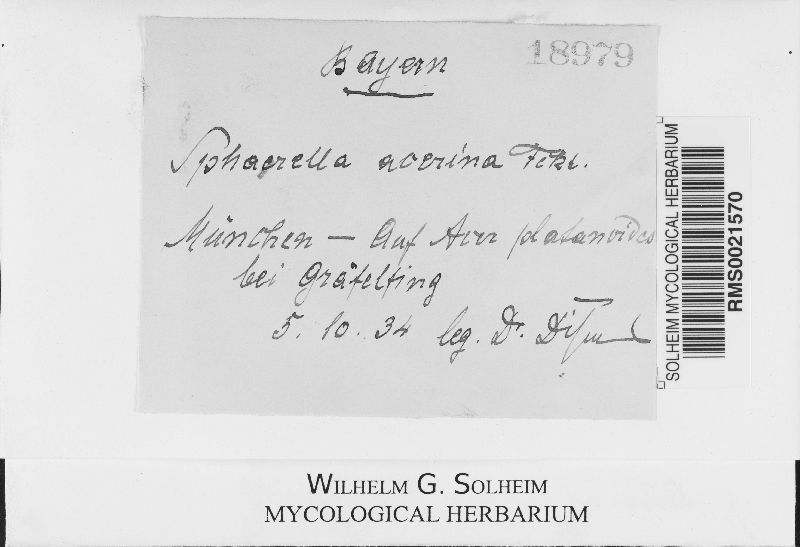 Bayern
18979
Sphaerella acerina Fckl.
München — Auf Acer platanoides
bei Gräfelfing
5. 10. 34 leg. Dr.
SOLHEIM MYCOLOGICAL HERBARIUM
RMS0021570
WILHELM G. SOLHEIM
MYCOLOGICAL HERBARIUM